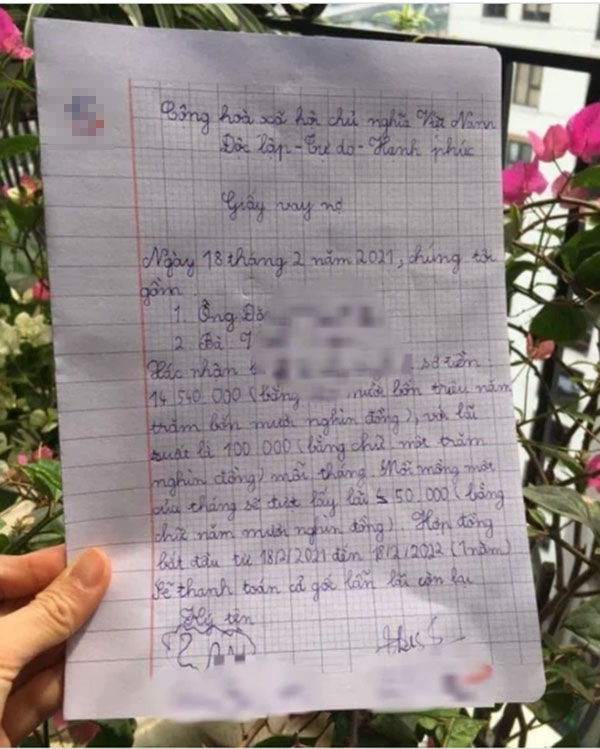 Cộng hoà xã hội chủ nghĩa Việt Nam
Độc lập - Tự do - Hạnh phúc
Giấy vay nợ
Ngày 18 tháng 2 năm 2021, chúng tôi
gồm
1. Ông Đỗ
2. Bà
Xác nhận số tiền
14 540 000 (bằng mười bốn triệu năm
trăm bốn mươi nghìn đồng), với lãi
suất là 100 000 (bằng chữ một trăm
nghìn đồng) mỗi tháng. Mỗi mồng một
của tháng sẽ được lấy lãi 50 000 (bằng
chữ năm mươi nghìn đồng). Hợp đồng
bắt đầu từ 18/2/2021 đến 18/2/2022 (1 năm)
Sẽ thanh toán cả gốc lẫn lãi còn lại
Ký tên